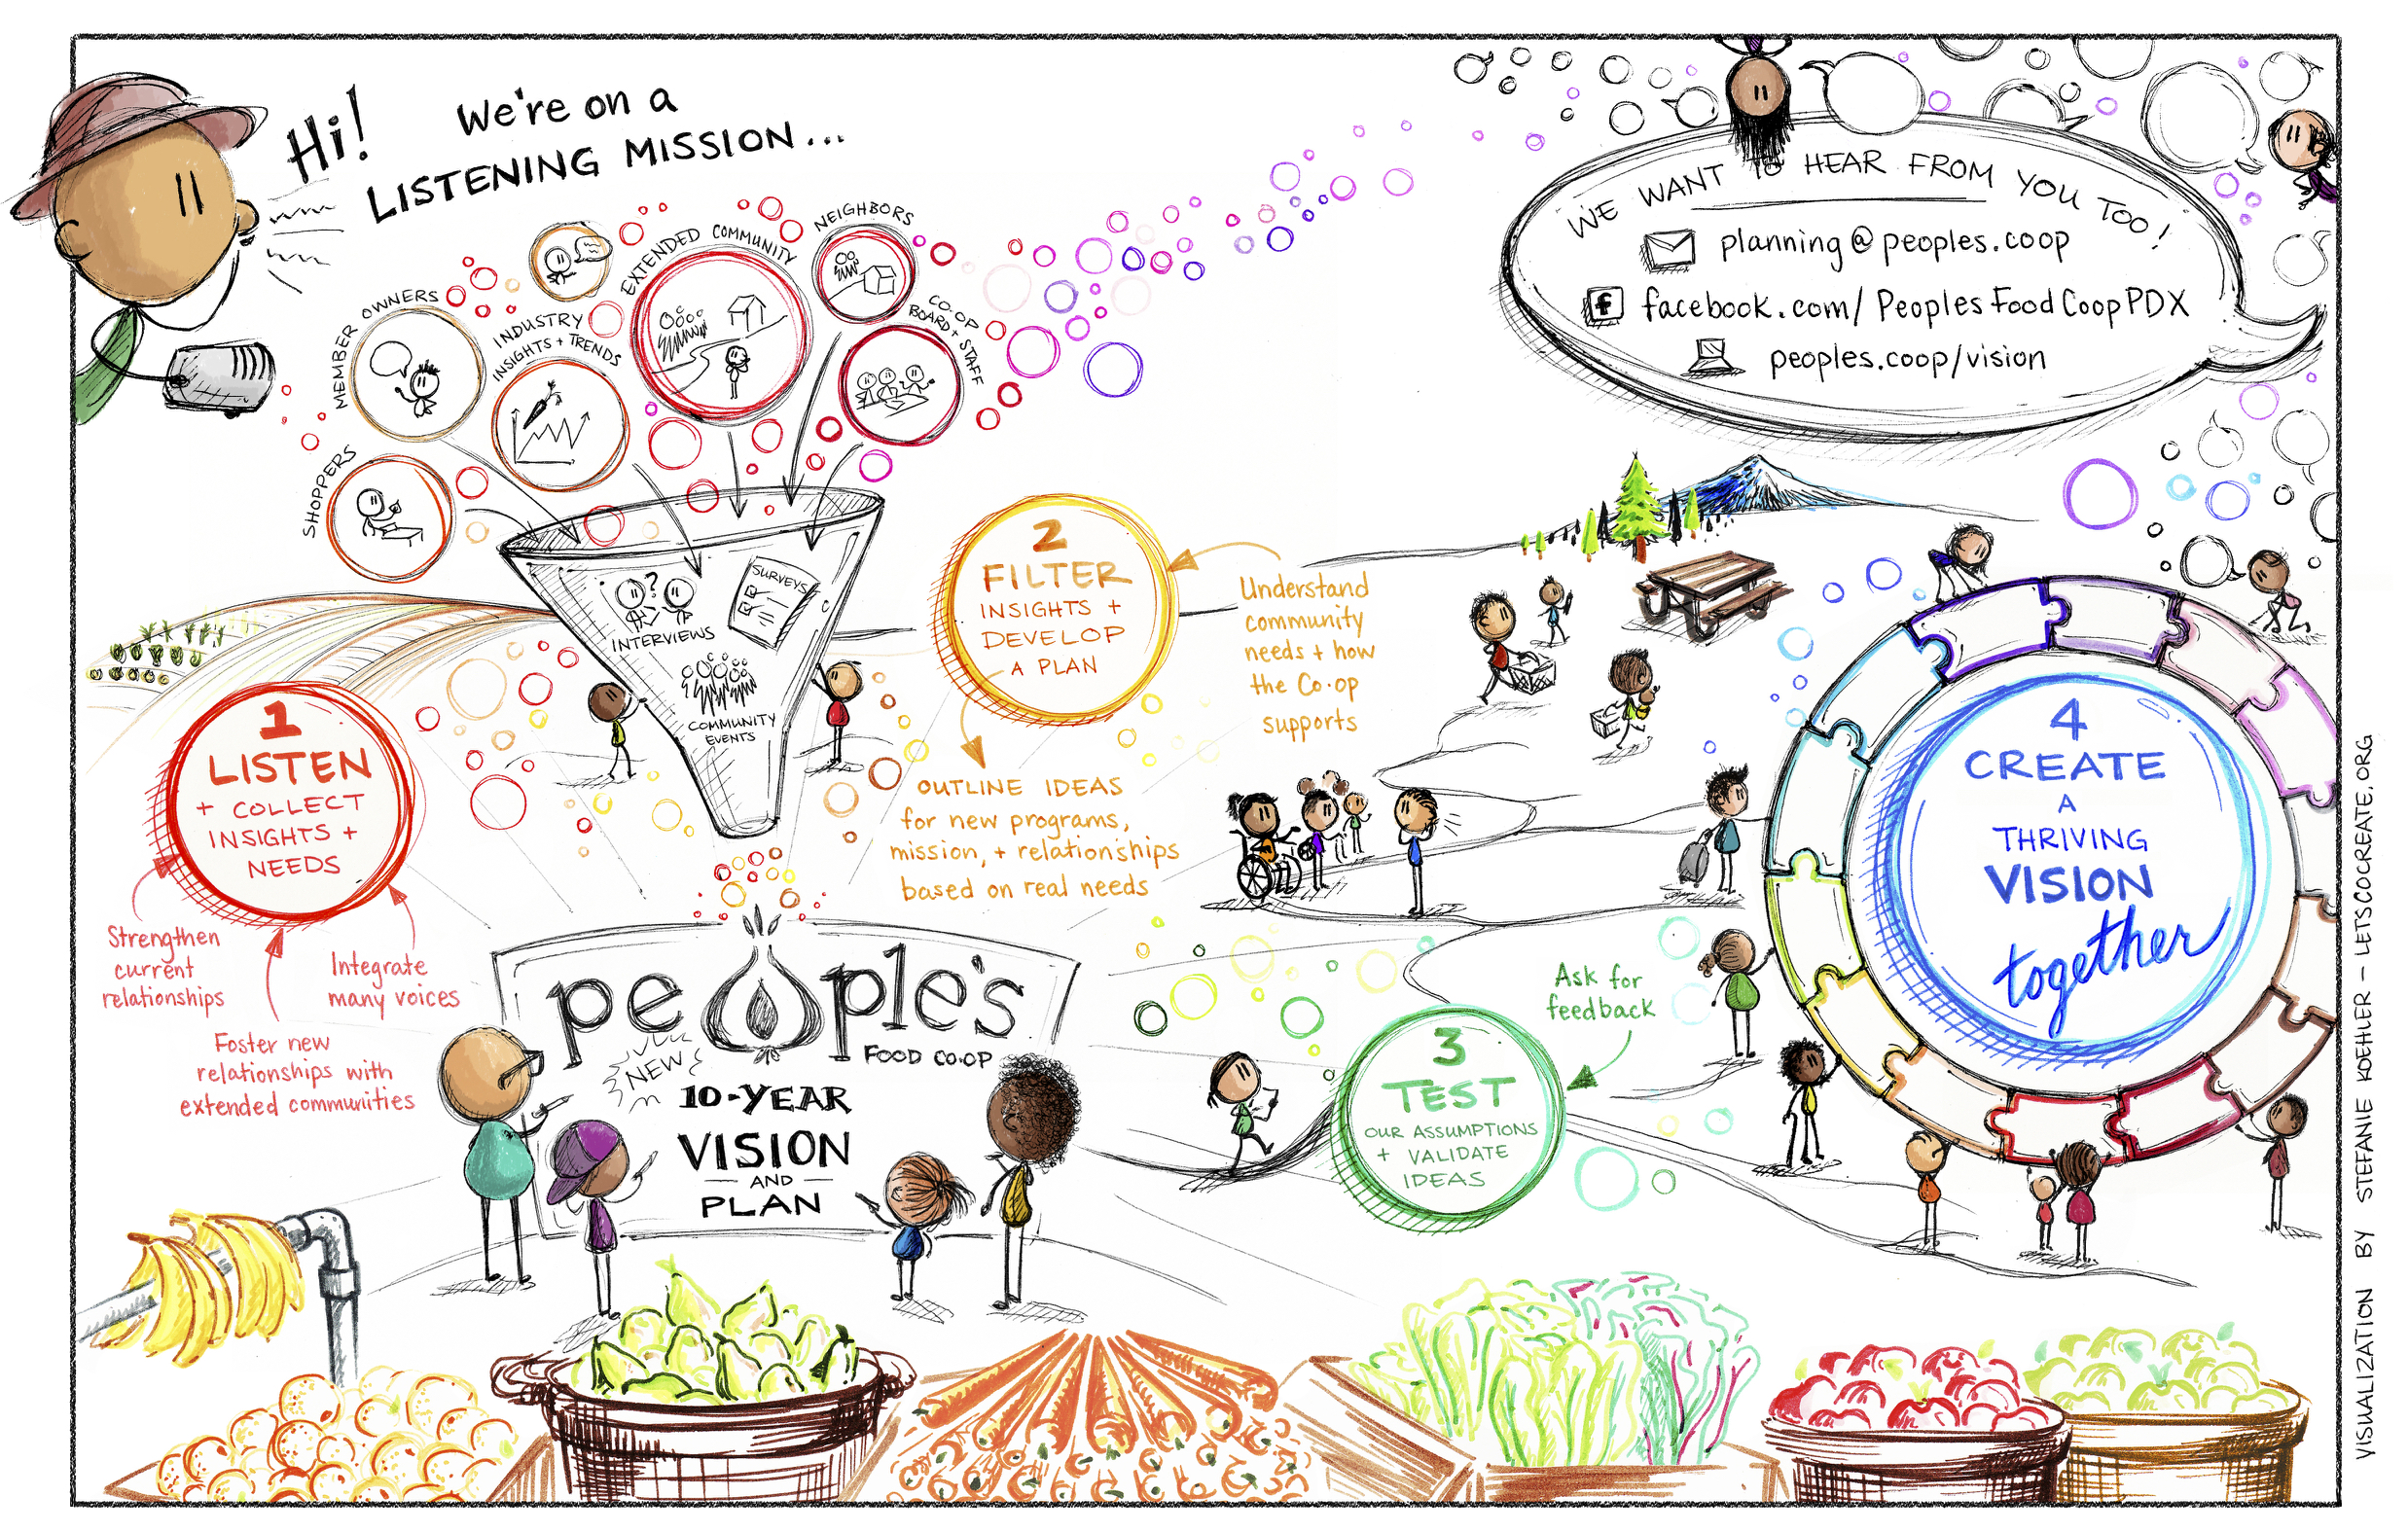 Hi! We're on a
LISTENING MISSION...
SHOPPERS
MEMBER OWNERS
INDUSTRY
INSIGHTS + TRENDS
EXTENDED COMMUNITY
NEIGHBORS
CO·OP
BOARD + STAFF
INTERVIEWS
SURVEYS
COMMUNITY
EVENTS
WE WANT TO HEAR FROM YOU TOO!
planning@peoples.coop
f facebook.com/PeoplesFoodCoopPDX
peoples.coop/vision
1
LISTEN
+ COLLECT
INSIGHTS +
NEEDS
Strengthen
current
relationships
Foster new
relationships with
extended communities
Integrate
many voices
2
FILTER
INSIGHTS +
DEVELOP
A PLAN
Understand
community
needs + how
the Co·op
supports
OUTLINE IDEAS
for new programs,
mission, + relationships
based on real needs
people's
FOOD CO·OP
NEW
10-YEAR
VISION
AND
PLAN
3
TEST
OUR ASSUMPTIONS
+ VALIDATE
IDEAS
Ask for
feedback
4
CREATE
A
THRIVING
VISION
together
VISUALIZATION BY STEFANIE KOEHLER - LETSCOCREATE.ORG